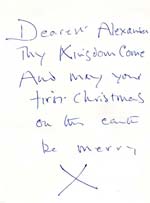 Dearest Alexander
Thy Kingdom Come
And may your
first Christmas
on this earth
be merry
X